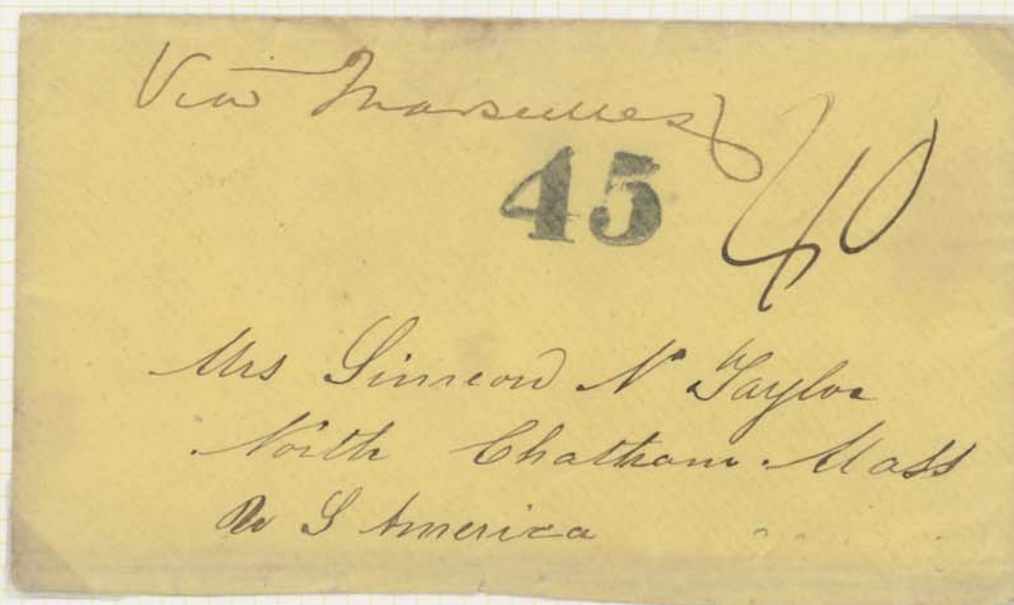 Via Marseilles
45
40
Mrs Simeon N Taylor
North Chatham. Mass
U S America